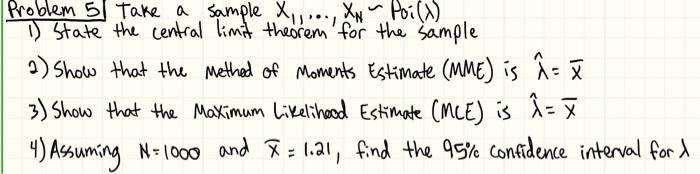 Problem 5 Take a sample X₁,..., X_N ~ Poi(λ)
1) State the central limit theorem for the sample
2) Show that the Method of Moments Estimate (MME) is λ̂ = x̄
3) Show that the Maximum Likelihood Estimate (MLE) is λ̂ = x̄
4) Assuming N=1000 and x̄ = 1.21, find the 95% confidence interval for λ